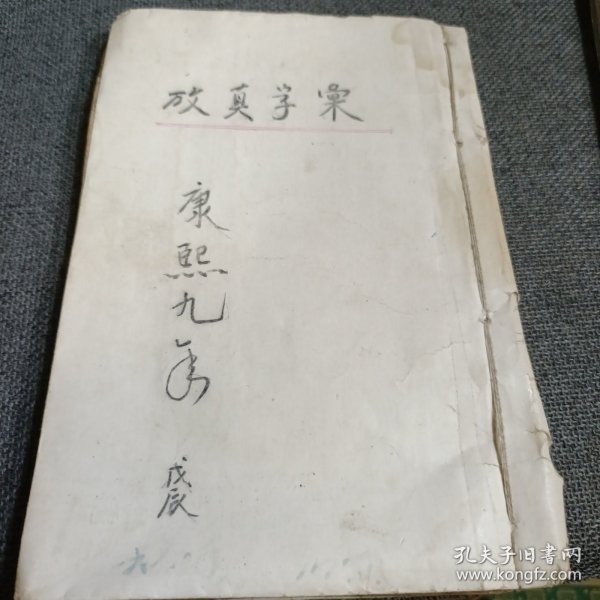 放真学彙
康熙九年
戊辰
孔夫子旧书网
www.kongfz.com